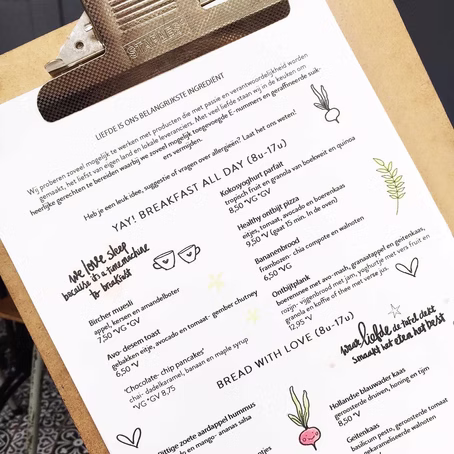 LIEFDE IS ONS BELANGRIJKSTE INGREDIËNT
Wij proberen zoveel mogelijk te werken met producten die met passie en verantwoordelijkheid worden
gemaakt, het liefst van eigen land en lokale leveranciers. Met veel liefde staan wij in de keuken om
heerlijke gerechten te bereiden waarbij we zoveel mogelijk toegevoegde E-nummers en geraffineerde suik-
ers vermijden.
Heb je een leuk idee, suggestie of vragen over allergieën? Laat het ons weten!
YAY! BREAKFAST ALL DAY (8u-17u)
we love sleep
because its a timemachine
to breakfast
Bircher muesli
appel, peren en amandelboter
7,50 *VG *GV
Avo- desem toast
gebakken eitje, avocado en tomaat- gember chutney
6,50 *V
'Chocolate- chip pancakes'
chai- dadelkaramel, banaan en maple syrup
*VG *GV 8,75
Kokosyoghurt parfait
tropisch fruit en granola van boekweit en quinoa
8,50 *VG *GV
Healthy ontbijt pizza
eitjes, tomaat, avocado en boerenkaas
9,50 *V (gaat 15 min. in de oven)
Bananenbrood
frambozen- chia compote en walnoten
6,50 *VG
Ontbijtplank
boerensmee met avo-mash, granaatappel en geitenkaas,
rozijn- vijgenbrood met jam, yoghurtje met vers fruit en
granola en koffie of thee met verse jus.
12,95 *V
waar liefde de tafel dekt
smaakt het eten het best
BREAD WITH LOVE (8u-17u)
Pittige zoete aardappel hummus
en mango- ananas salsa
Hollandse blauwader kaas
geroosterde druiven, honing en tijm
8,50 *V
Geitenkaas
basilicum pesto, geroosterde tomaat
gekarameliseerde walnoten